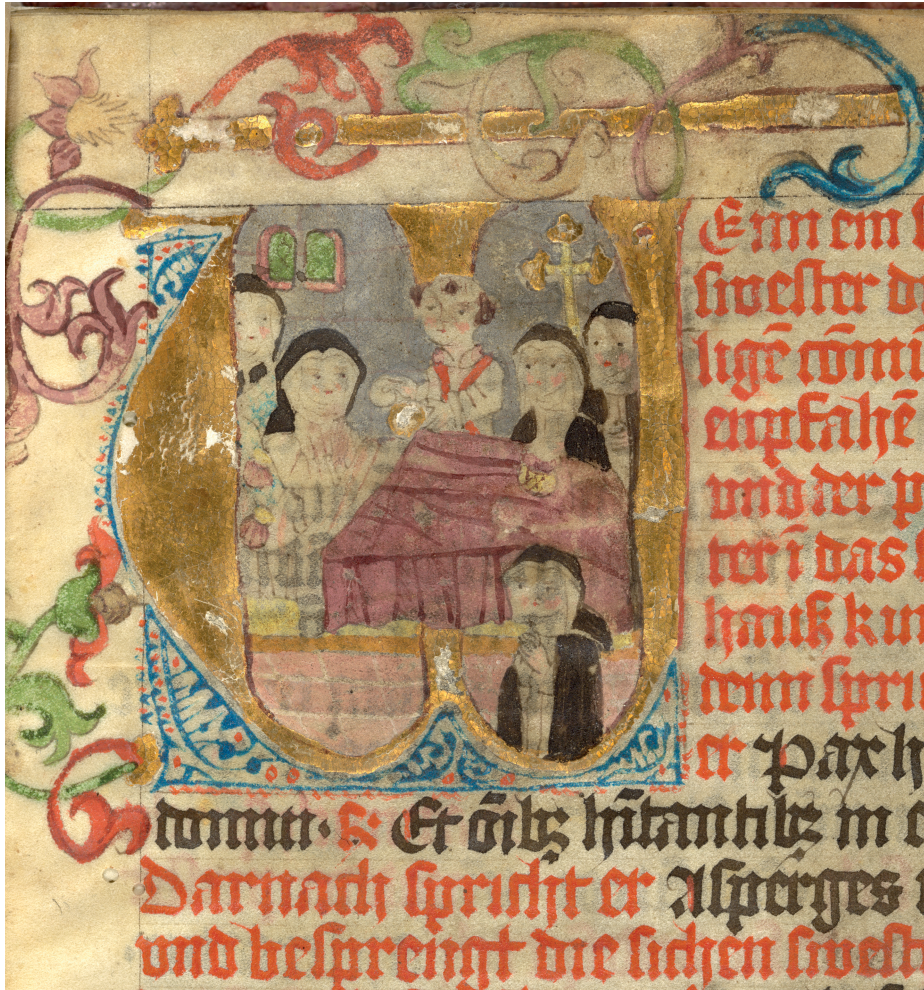 Enn ein
swester d
ligē cōmi
enpfahē
vnd der p
ter ī das
hauß ku
denn spri
er Pax h
domui · R Et ōibꝫ hītantibꝫ in
Darnach spricht er Asperges
vnd besprengt die sichen swest